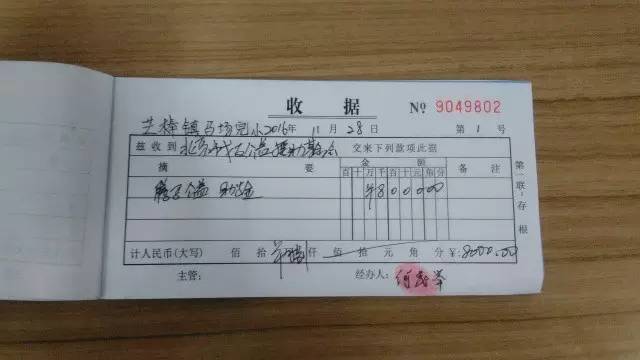 收 据 № 9049802
镇马场完小2016年 11月28日 第1号
兹收到 北京 公益 交来下列款项此据
摘 要 金 额 备 注
百 十 万 千 百 十 元 角 分
公益 助 金 ¥ 8 0 0 0 0 0
计人民币(大写) 佰 拾 万 捌 仟 佰 拾 元 角 分 ¥:8000.00
主管: 经办人:
第一联:存根